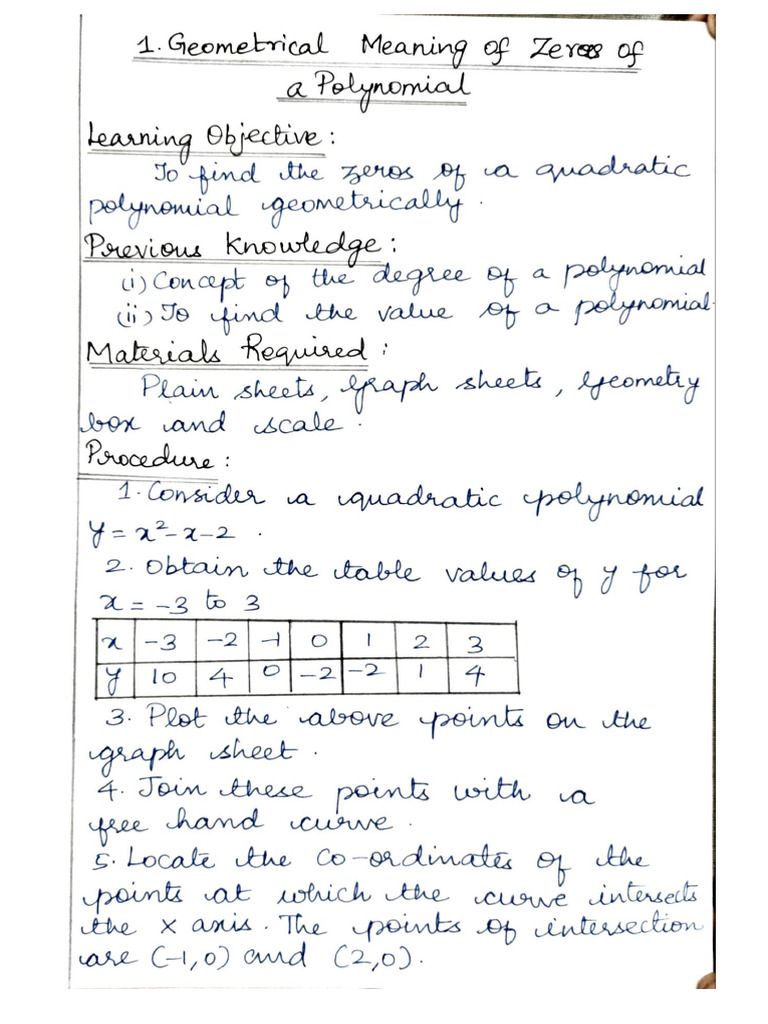 1. Geometrical Meaning of Zeros of
a Polynomial
Learning Objective :
To find the zeros of a quadratic
polynomial geometrically .
Previous Knowledge :
(i) Concept of the degree of a polynomial
(ii) To find the value of a polynomial.
Materials Required :
Plain sheets, Graph sheets, Geometry
box and scale .
Procedure :
1. Consider a quadratic polynomial
y = x² - x - 2 .
2. Obtain the table values of y for
x = -3 to 3
x -3 -2 -1 0 1 2 3
y 10 4 0 -2 -2 1 4
3. Plot the above points on the
graph sheet .
4. Join these points with a
free hand curve .
5. Locate the co-ordinates of the
points at which the curve intersects
the x axis. The points of intersection
are (-1,0) and (2,0).